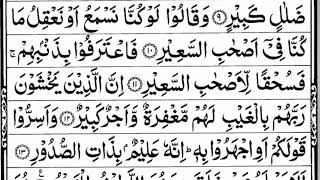 ضَلٰلٍ كَبِيْرٍ ۝۹ وَقَالُوْا لَوْ كُنَّا نَسْمَعُ اَوْ نَعْقِلُ مَا
كُنَّا فِيْٓ اَصْحٰبِ السَّعِيْرِ ۝۱۰ فَاعْتَرَفُوْا بِذَنْۢبِهِمْ ۚ
فَسُحْقًا لِّاَصْحٰبِ السَّعِيْرِ ۝۱۱ اِنَّ الَّذِيْنَ يَخْشَوْنَ
رَبَّهُمْ بِالْغَيْبِ لَهُمْ مَّغْفِرَةٌ وَّاَجْرٌ كَبِيْرٌ ۝۱۲ وَاَسِرُّوْا
قَوْلَكُمْ اَوِ اجْهَرُوْا بِهٖ ؕ اِنَّهٗ عَلِيْمٌۢ بِذَاتِ الصُّدُوْرِ ۝۱۳